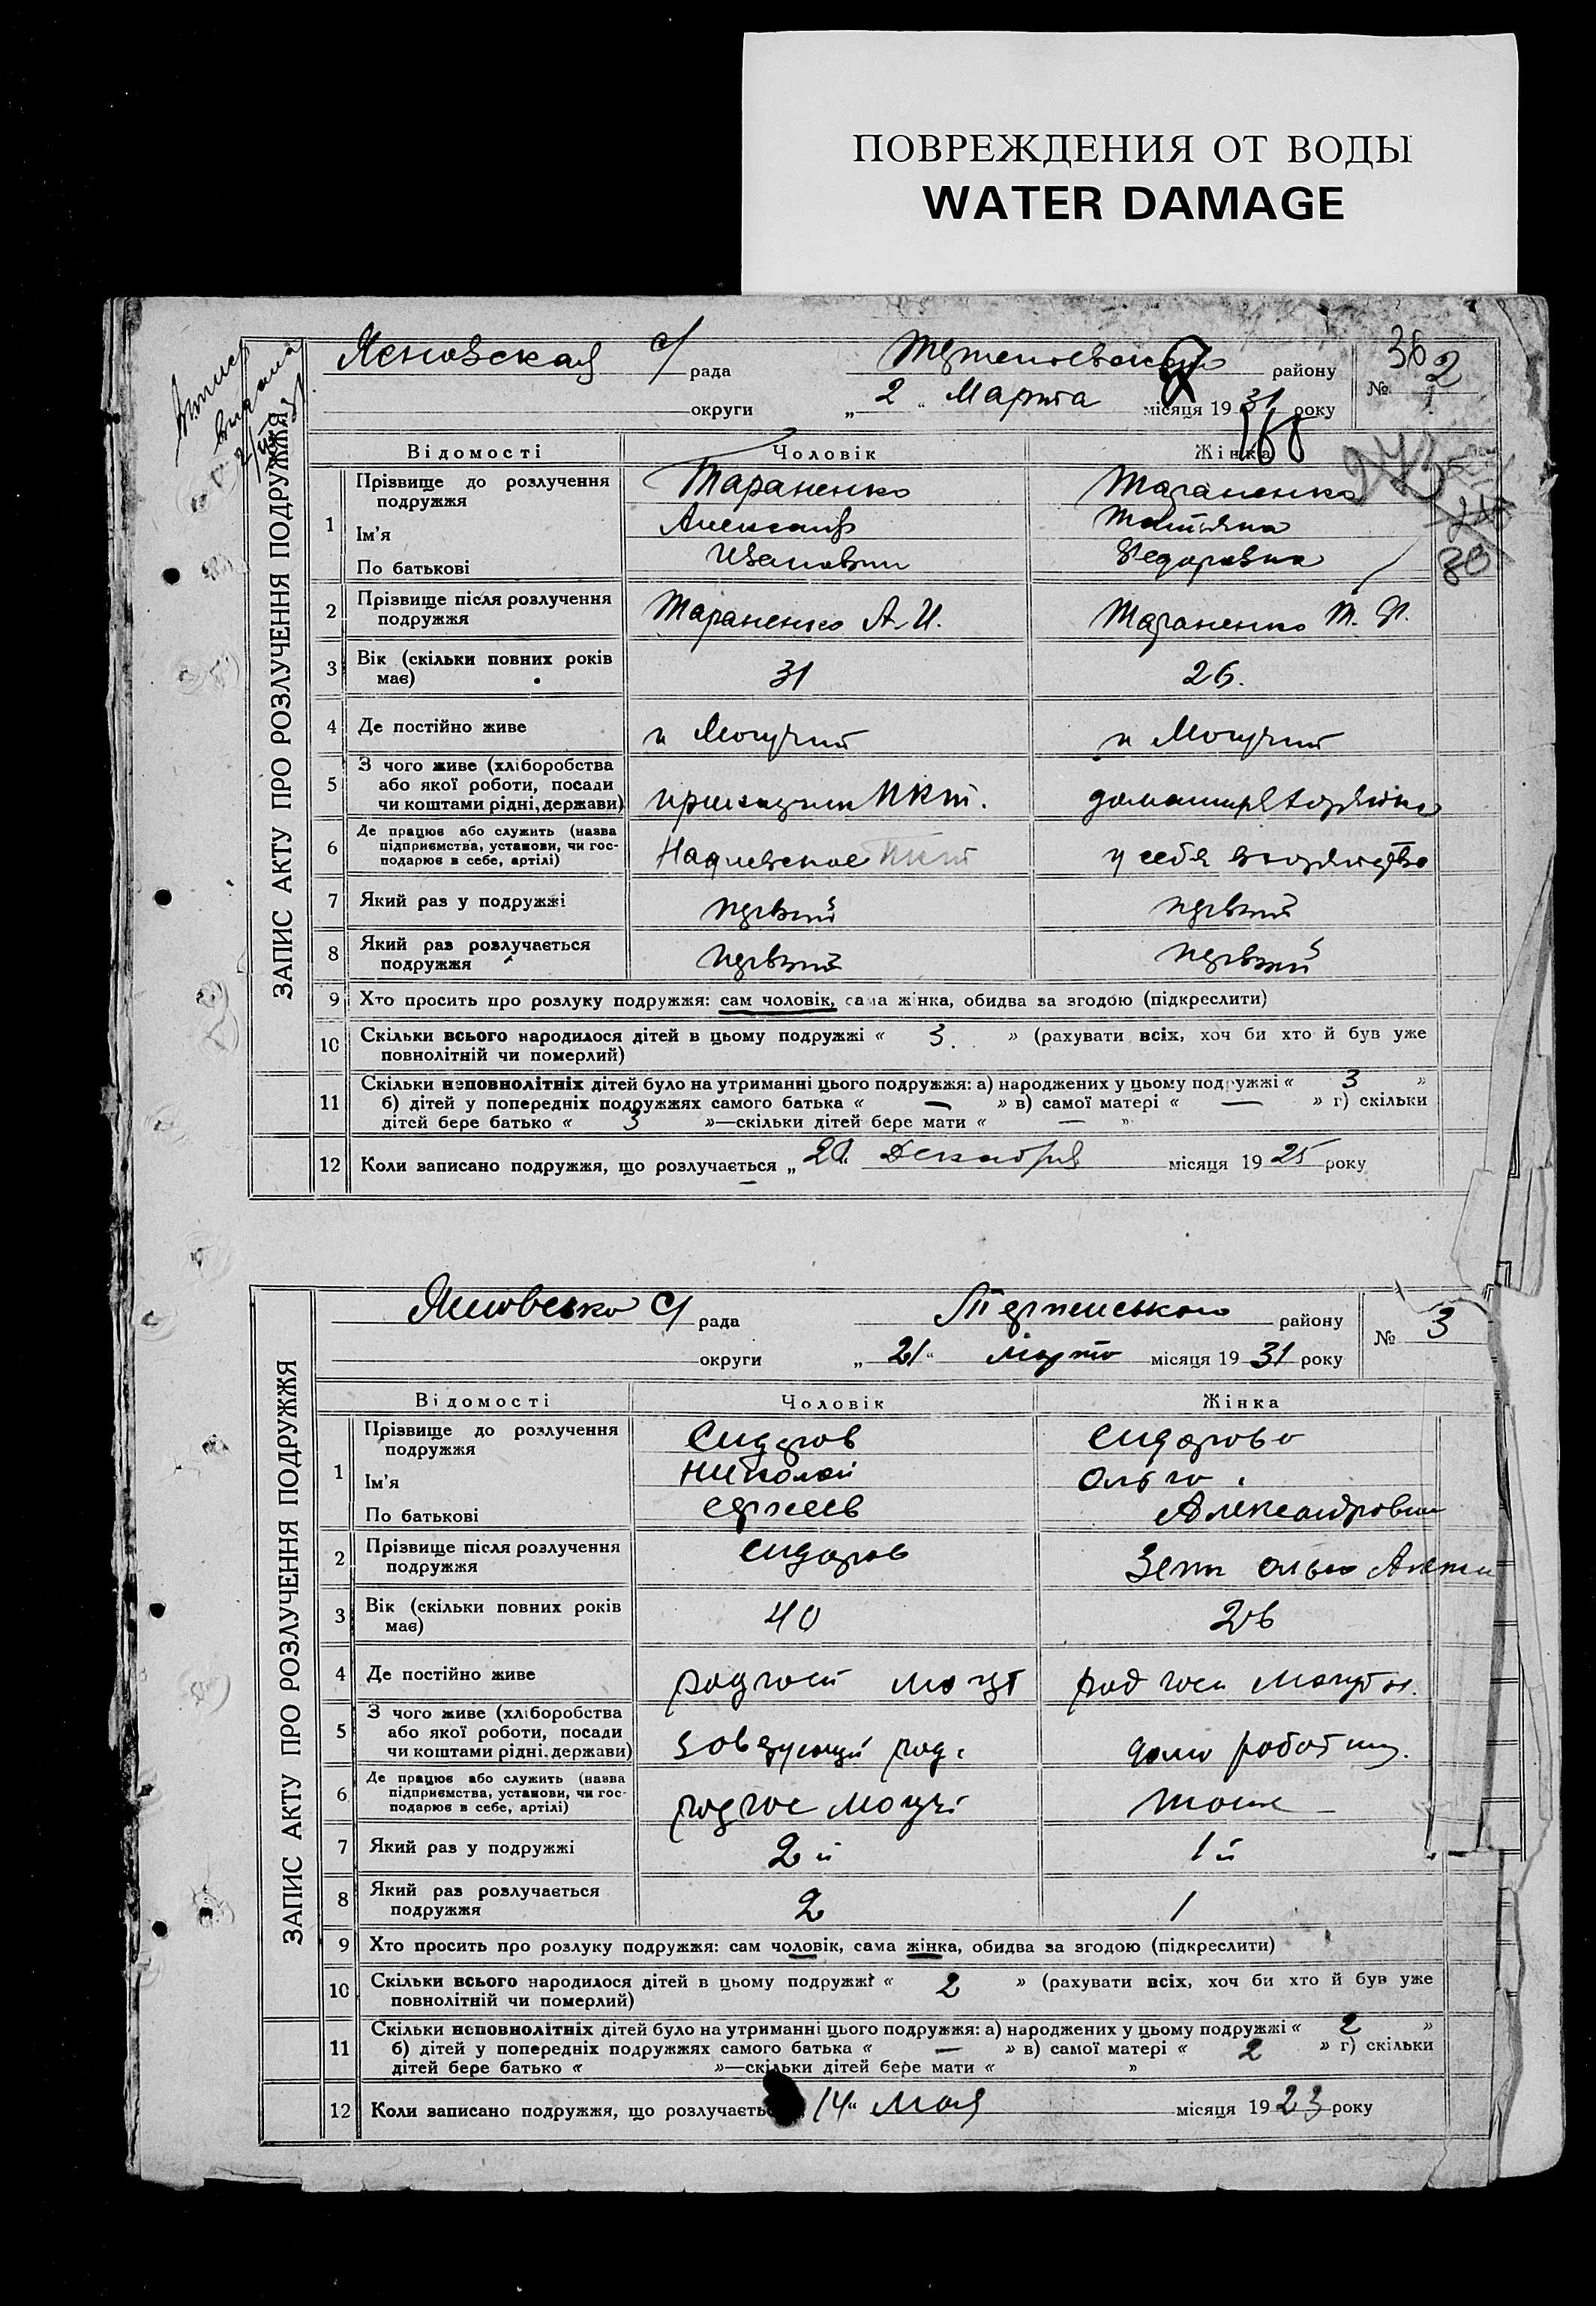 ПОВРЕЖДЕНИЯ ОТ ВОДЫ
WATER DAMAGE
ЗАПИС АКТУ ПРО РОЗЛУЧЕННЯ ПОДРУЖЖЯ
Яновская с/ рада району № 36 2
округи „ 2 “ Марта місяця 19 31 року
188
Відомості Чоловік Жінка
1 Прізвище до розлучення подружжя Тараненко Тараненко
Ім'я Александр Татьяна
По батькові Иванович Федоровна
2 Прізвище після розлучення подружжя Тараненко А. И. Тараненко Т. Ф.
3 Вік (скільки повних років має) 31 26.
4 Де постійно живе п Могучий п Могучий
5 З чого живе (хліборобства або якої роботи, посади чи коштами рідні, держави)
6 Де працює або служить (назва підприємства, установи, чи господарює в себе, артілі) у себя
7 Який раз у подружжі первый первый
8 Який раз розлучається подружжя первый первый
9 Хто просить про розлуку подружжя: сам чоловік, сама жінка, обидва за згодою (підкреслити)
10 Скільки всього народилося дітей в цьому подружжі « 3 » (рахувати всіх, хоч би хто й був уже
повнолітній чи померлий)
11 Скільки неповнолітніх дітей було на утриманні цього подружжя: а) народжених у цьому подружжі « 3 »
б) дітей у попередніх подружжях самого батька « — » в) самої матері « — » г) скільки
дітей бере батько « 3 »—скільки дітей бере мати « — »
12 Коли записано подружжя, що розлучається „ “ Декабря місяця 19 25 року
ЗАПИС АКТУ ПРО РОЗЛУЧЕННЯ ПОДРУЖЖЯ
с/ рада району № 3
округи „ 21 “ Марта місяця 19 31 року
Відомості Чоловік Жінка
1 Прізвище до розлучення подружжя Сидоров Сидорова
Ім'я Николай Ольга
По батькові Сергеев Александровна
2 Прізвище після розлучення подружжя Сидоров
3 Вік (скільки повних років має) 40 26
4 Де постійно живе
5 З чого живе (хліборобства або якої роботи, посади чи коштами рідні, держави)
6 Де працює або служить (назва підприємства, установи, чи господарює в себе, артілі)
7 Який раз у подружжі 2 й 1 й
8 Який раз розлучається подружжя 2 1
9 Хто просить про розлуку подружжя: сам чоловік, сама жінка, обидва за згодою (підкреслити)
10 Скільки всього народилося дітей в цьому подружжі « 2 » (рахувати всіх, хоч би хто й був уже
повнолітній чи померлий)
11 Скільки неповнолітніх дітей було на утриманні цього подружжя: а) народжених у цьому подружжі « 2 »
б) дітей у попередніх подружжях самого батька « — » в) самої матері « 2 » г) скільки
дітей бере батько « »—скільки дітей бере мати « »
12 Коли записано подружжя, що розлучаєть 14 “ Мая місяця 19 23 року